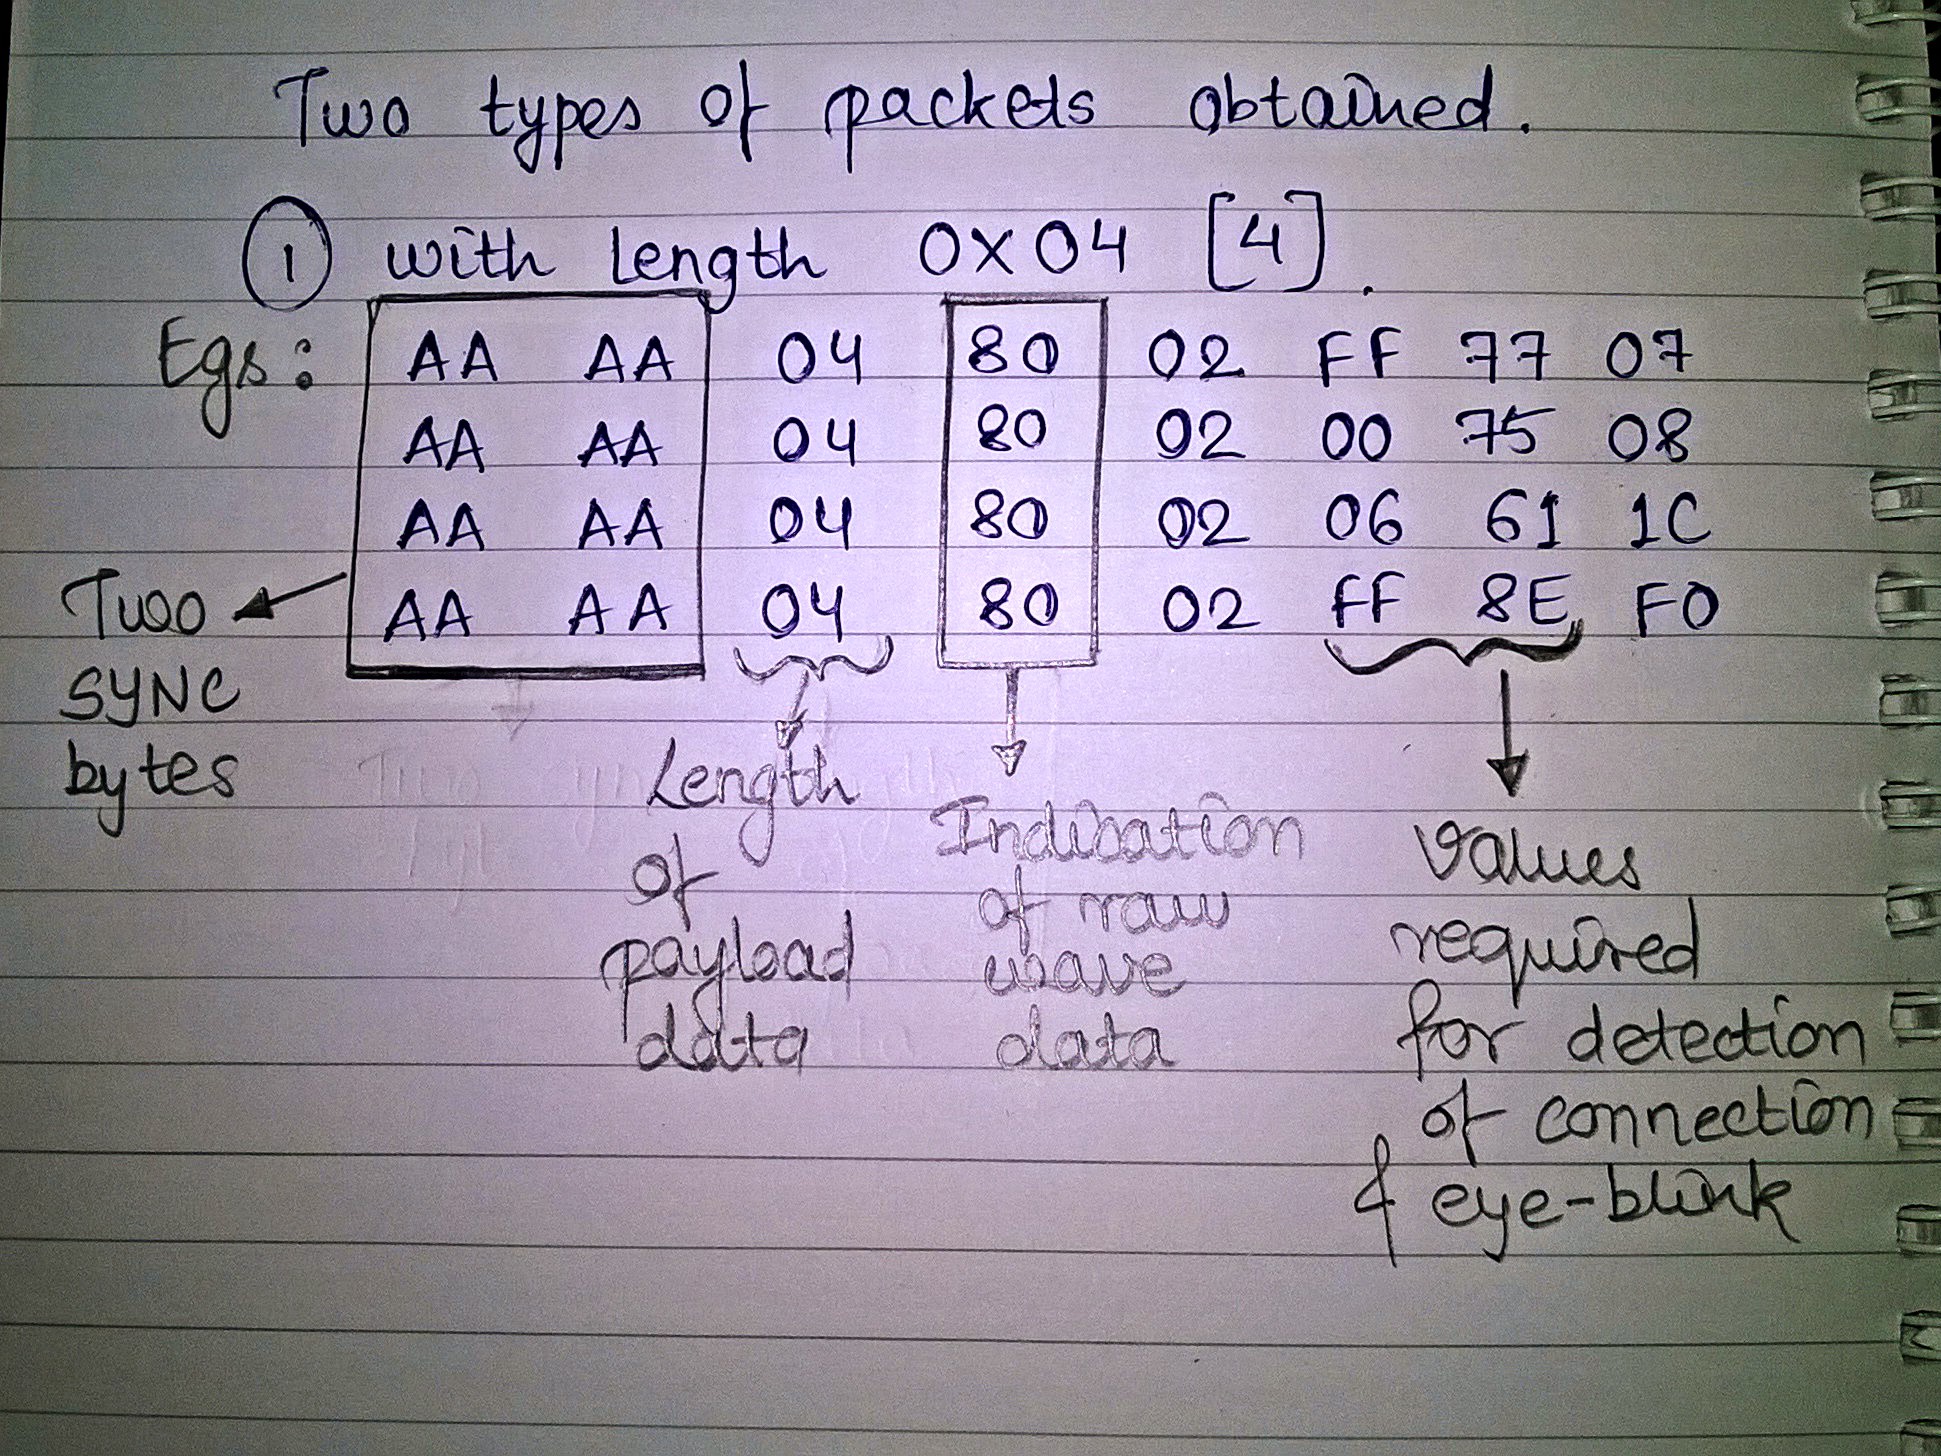 Two types of packets obtained.
1 with Length 0X04 [4].
Egs: AA AA 04 80 02 FF 77 07
AA AA 04 80 02 00 75 08
AA AA 04 80 02 06 61 1C
AA AA 04 80 02 FF 8E F0
Two
SYNC
bytes
Length
of
payload
data
Indication
of raw
wave
data
Values
required
for detection
of connection
& eye-blink